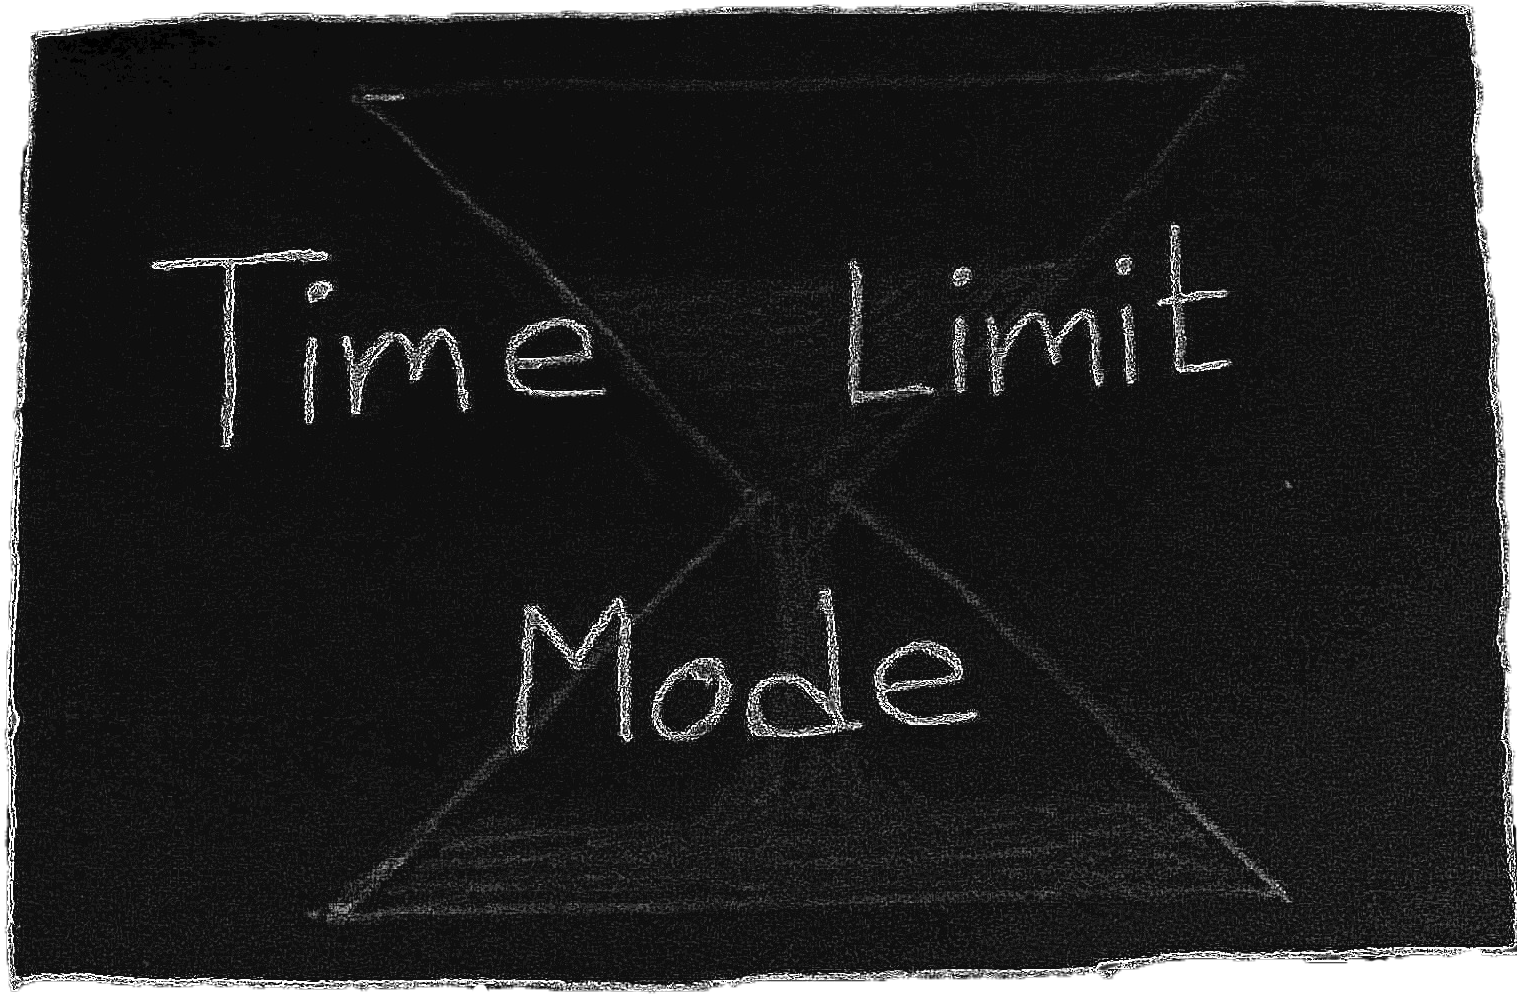 Time Limit
Mode